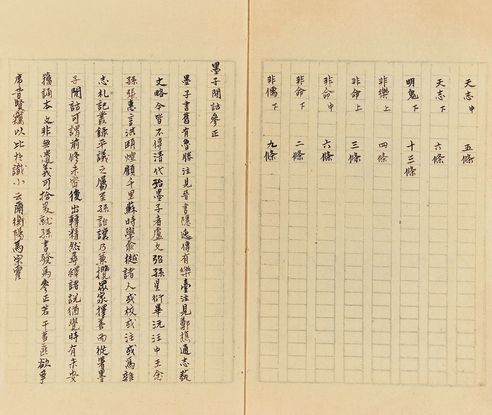 天志中 五條
天志下 六條
明鬼下 十三條
非樂上 四條
非命上 三條
非命中 六條
非命下 二條
非儒下 九條
墨子閒詁參正
墨子書舊有魯勝注見晉書隱逸傳有樂臺注見鄭樵通志藝
文略今皆不得清代治墨子者盧文弨孫星衍畢沅汪中王念
孫張惠言洪頤煊顧千里蘇時學俞樾諸人或校或注或為雜
志札記叢錄平議之屬至孫詒讓乃兼攬眾家擇善而從署墨
子閒詁可謂前修未密後出轉精然尋繹諸說猶覺時有未安
籀誦本文非無賸義可拾爰就孫書發為參正若干首匪欲爭
席昔賢竊以比於識小云爾衡陽馬宗霍